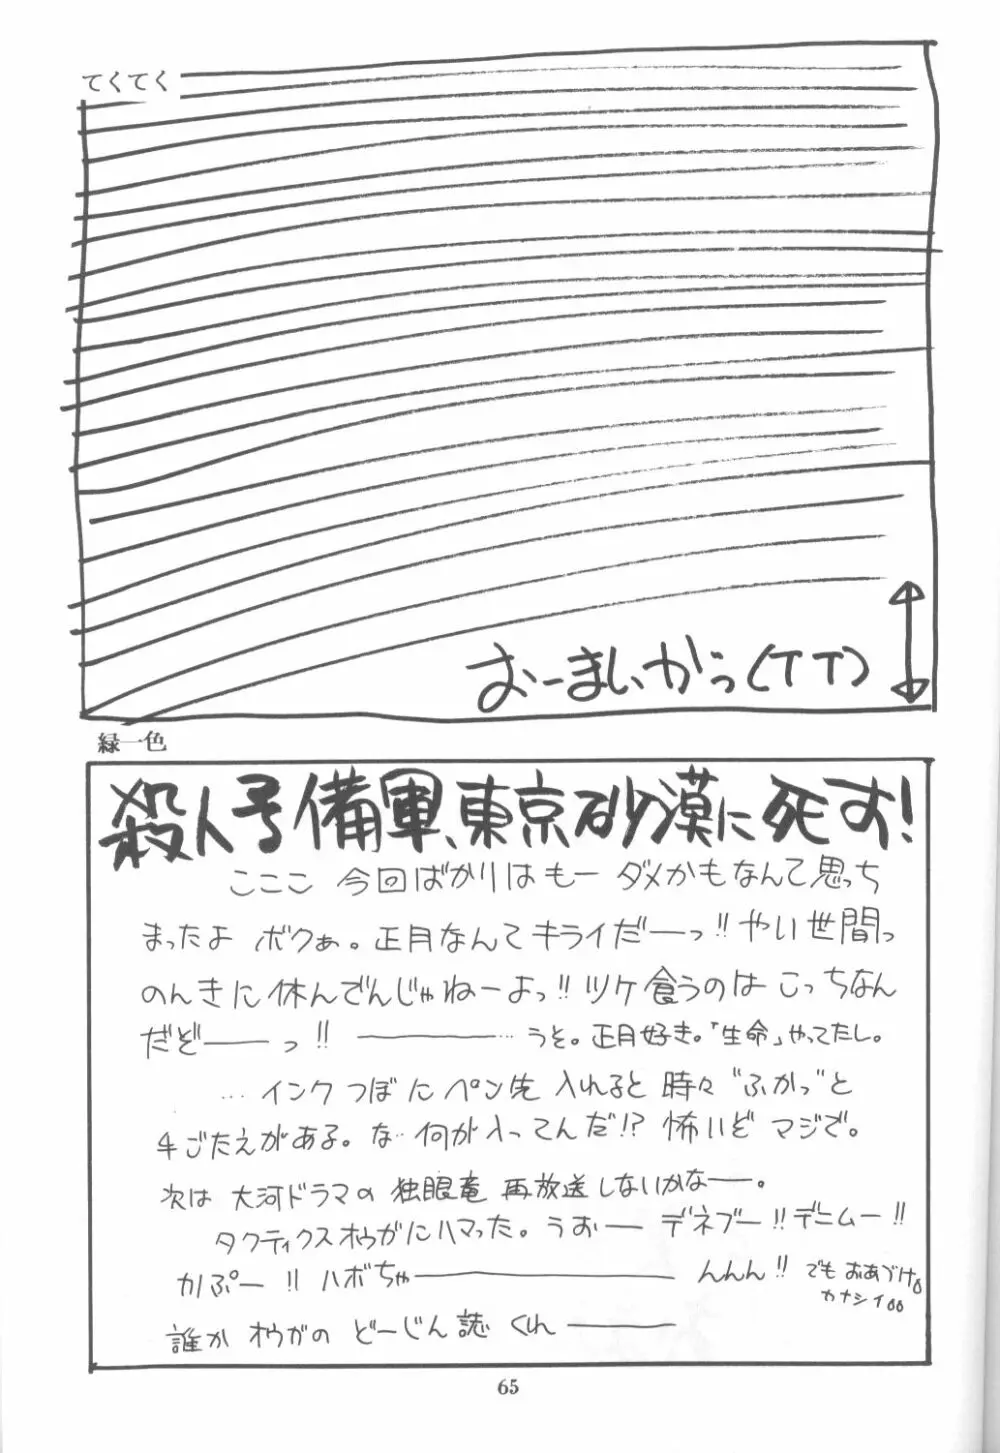 てくてく
おーまいがっ(TT)
緑一色
殺人予備軍、東京砂漠に死す!
こここ 今回ばかりはもー ダメかもなんて思っち
まったよ ボクぁ。正月なんてキライだーーっ!!やい世間っ
のんきに休んでんじゃねーよっ!!ツケ食うのは こっちなん
だぞーーっ!! ――――…うそ。正月好き。「生命」やってたし。
…インクつぼにペン先 入れると 時々 “ふかっ”と
手ごたえがある。な…何が入ってんだ!? 怖いぞ マジで。
次は 大河ドラマの 独眼竜 再放送しないかなー。
タクティクスオウガにハマった。うおー デネブー!!デニムー!!
かぷー!! ハボちゃーーーーんんん!! でも おあづけ。
カナシイ。。
誰か オウガの どーじん誌 くれーーー
65